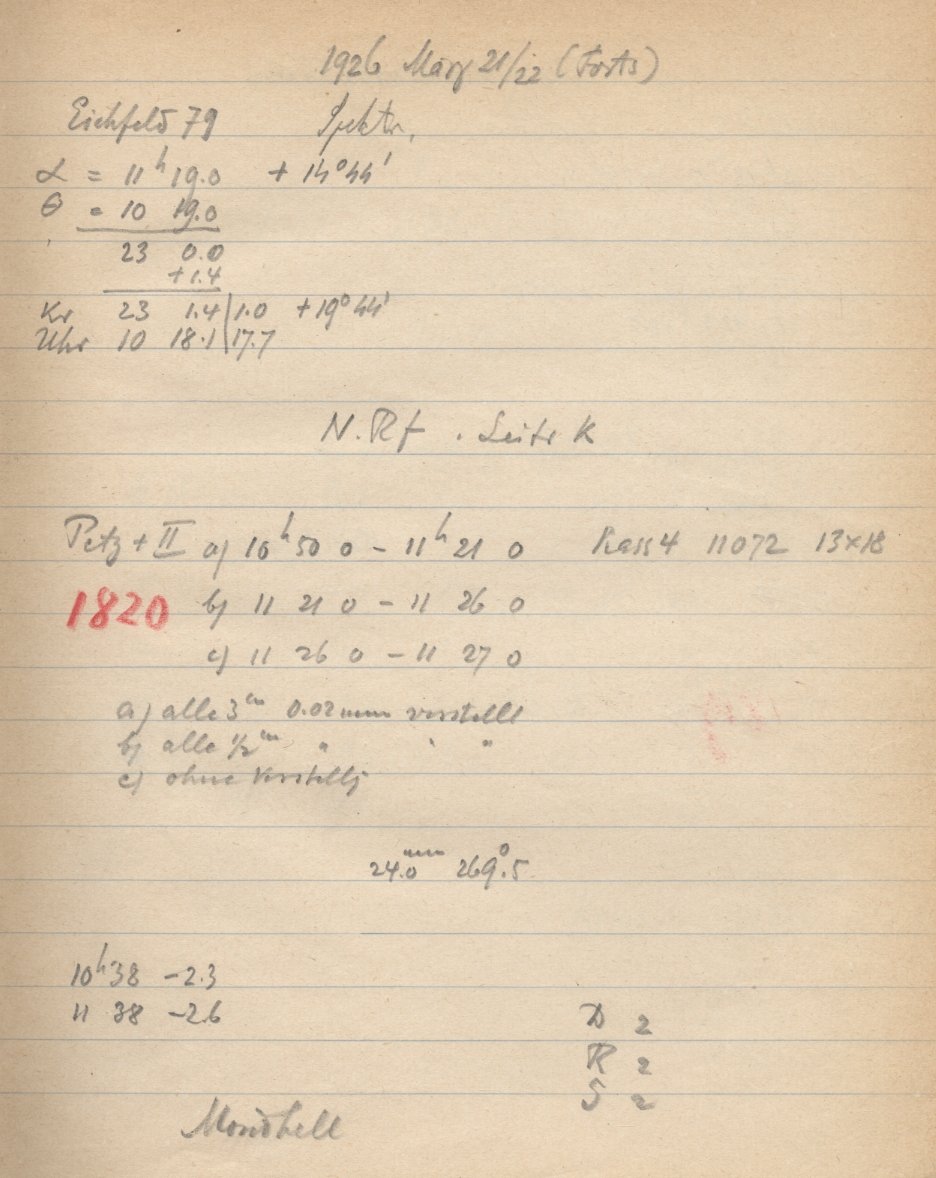 1926 März 21/22 (Forts)
Eichfeld 79 Spektr.
α = 11ʰ 19.0 + 14°44'
θ = 10 19.0
23 0.0
+1.4
Kr 23 1.4 | 1.0 +19°44'
Uhr 10 18.1 | 17.7
N. Rf. Seite K
Petz + II a) 10ʰ 50 0 – 11ʰ 21 0 Kass 4 11072 13×18
1820 b) 11 21 0 – 11 26 0
c) 11 26 0 – 11 27 0
a) alle 3ᵐ 0.02 mm verstellt
b) alle 1/2ᵐ " " "
c) ohne Verstellg
24.0ᵐᵐ 269°.5
10ʰ38 –2.3
11 38 –2.6
D 2
R 2
S 2
Mondhell